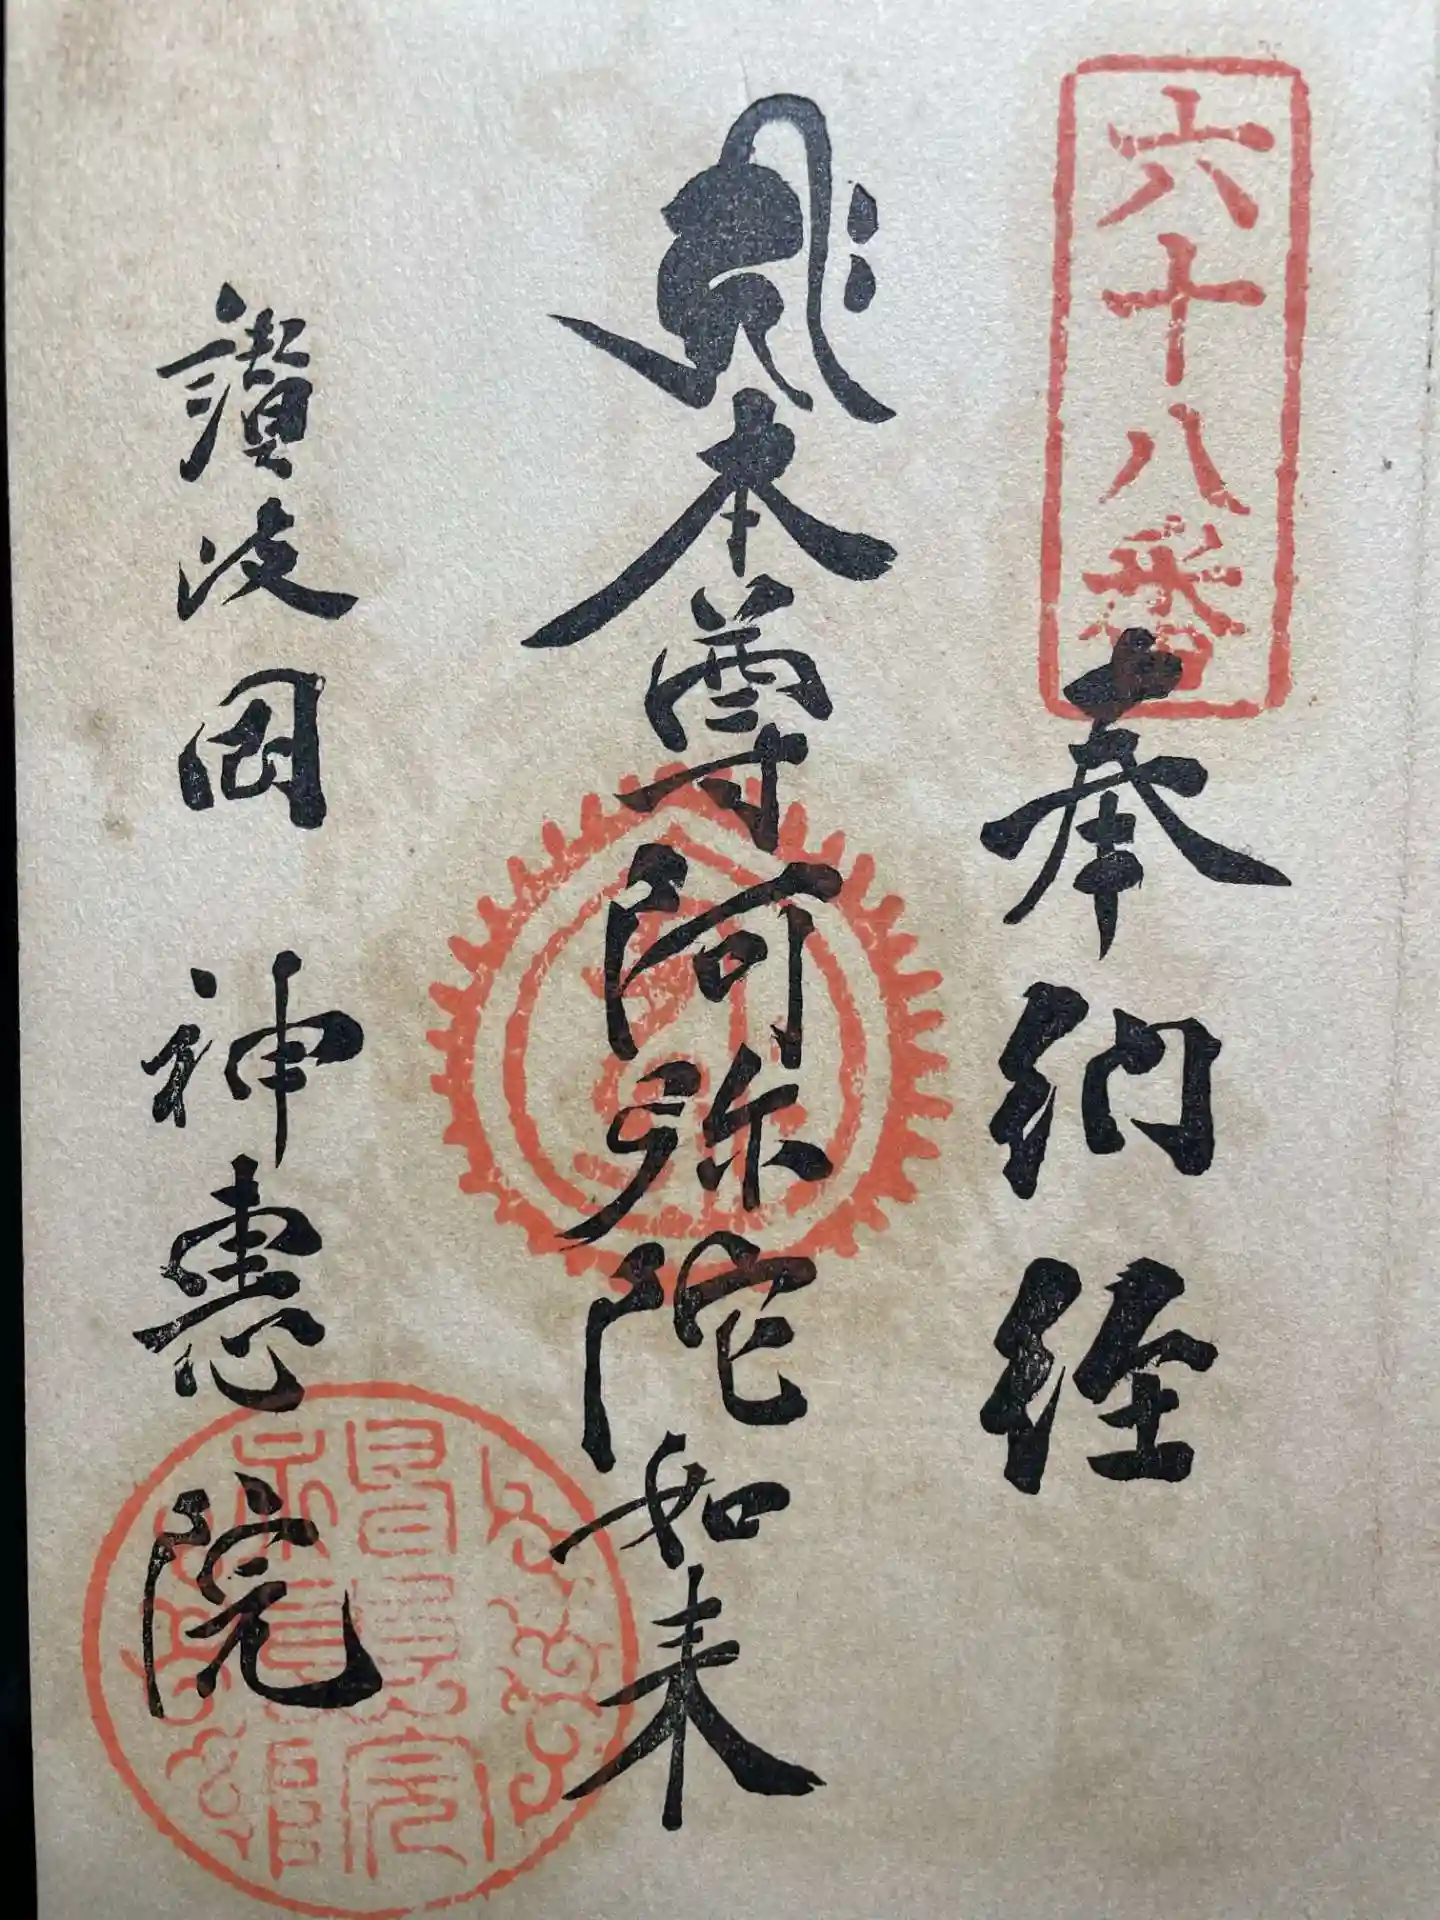 六十八番
奉納経
本尊阿弥陀如来
讃岐国 神恵院